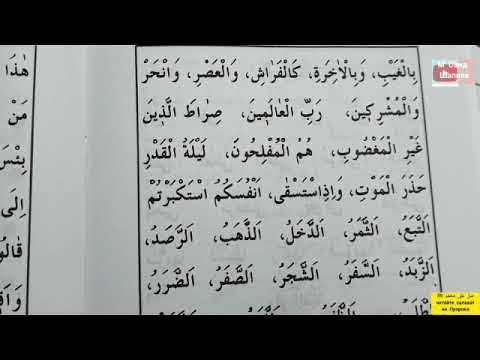 بِالْغَيْبِ، وَبِالْاٰخِرَةِ، كَالْفَرَاشِ، وَالْعَصْرِ، وَانْحَرْ
وَالْمُشْرِكِينَ، رَبِّ الْعَالَمِينَ، صِرَاطَ الَّذِينَ
غَيْرِ الْمَغْضُوبِ، هُمُ الْمُفْلِحُونَ، لَيْلَةُ الْقَدْرِ
حَذَرَ الْمَوْتِ، وَاِذِاسْتَسْقٰى، اَنْفُسَكُمُ اسْتَكْبَرْتُمْ
اَلتَّبَعُ، اَلثَّمَرُ، اَلدَّخَلُ، اَلذَّهَبُ، اَلرَّصَدُ،
اَلزَّبَدُ، اَلسَّفَرُ، اَلشَّجَرُ، اَلصَّفَرُ، اَلضَّرَرُ،
هٰذَا
مَنْ
بِئْسَ
اِلَى
قَالُو
М Саид
Шапиев
читайте салават
на Пророка